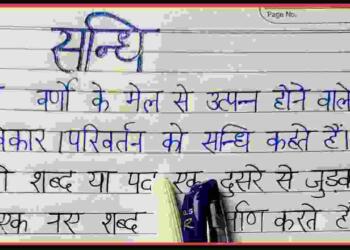 Page No.
सन्धि
वर्णो के मेल से उत्पन्न होने वाले
विकार/परिवर्तन को सन्धि कहते हैं।
शब्द या पद एक दूसरे से जुडक
एक नए शब्द करते हैं